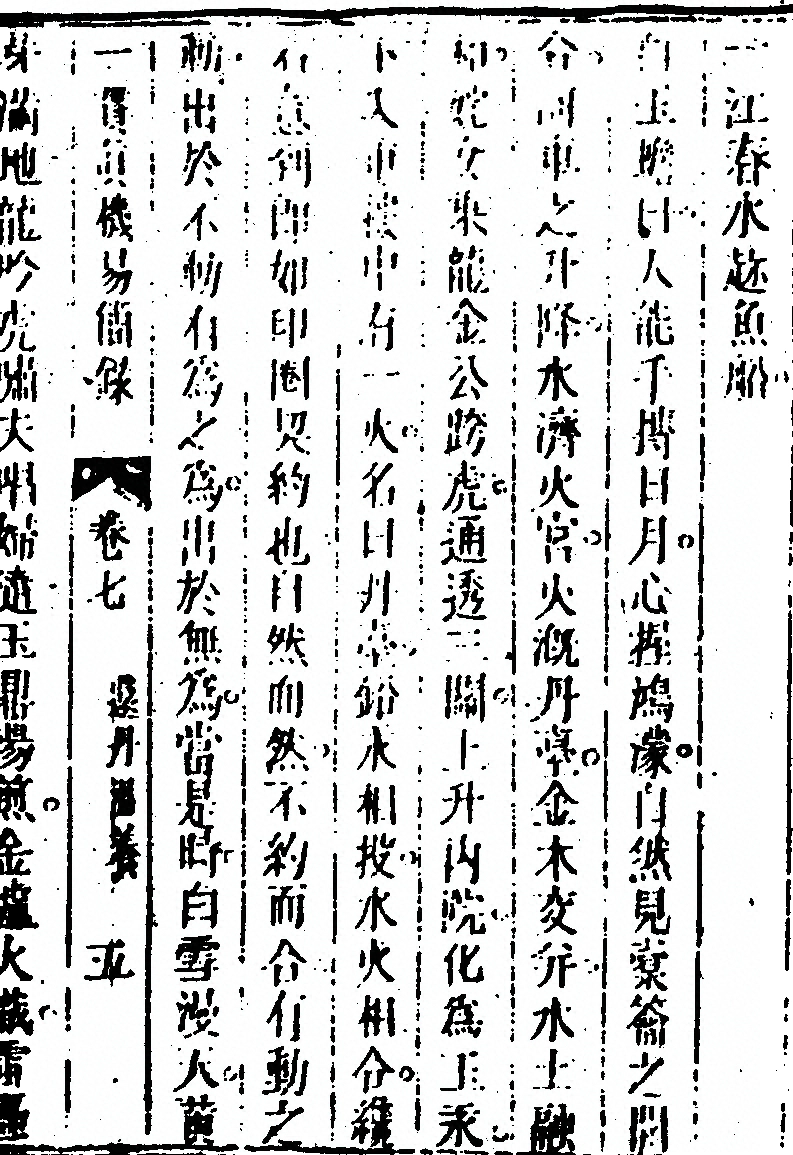 一江春水趂魚船
白玉蟾曰人能手摶日月心握鴻濛自然見橐籥之開
合河車之升降水濟火宮火溉丹臺金木交并水土融
和姹女乘龍金公跨虎通透三關上升內院化為玉汞
下入重樓中有一穴名曰丹臺鉛汞相投水火相合纔
有意到即如印圈契約也自然而然不約而合有動之
動出於不動有為之為出於無為當是時白雪漫天黃
一貫真機易簡錄 卷七 還丹溫養 五
芽滿地龍吟虎嘯夫唱婦隨玉鼎湯煎金爐火熾雷轟